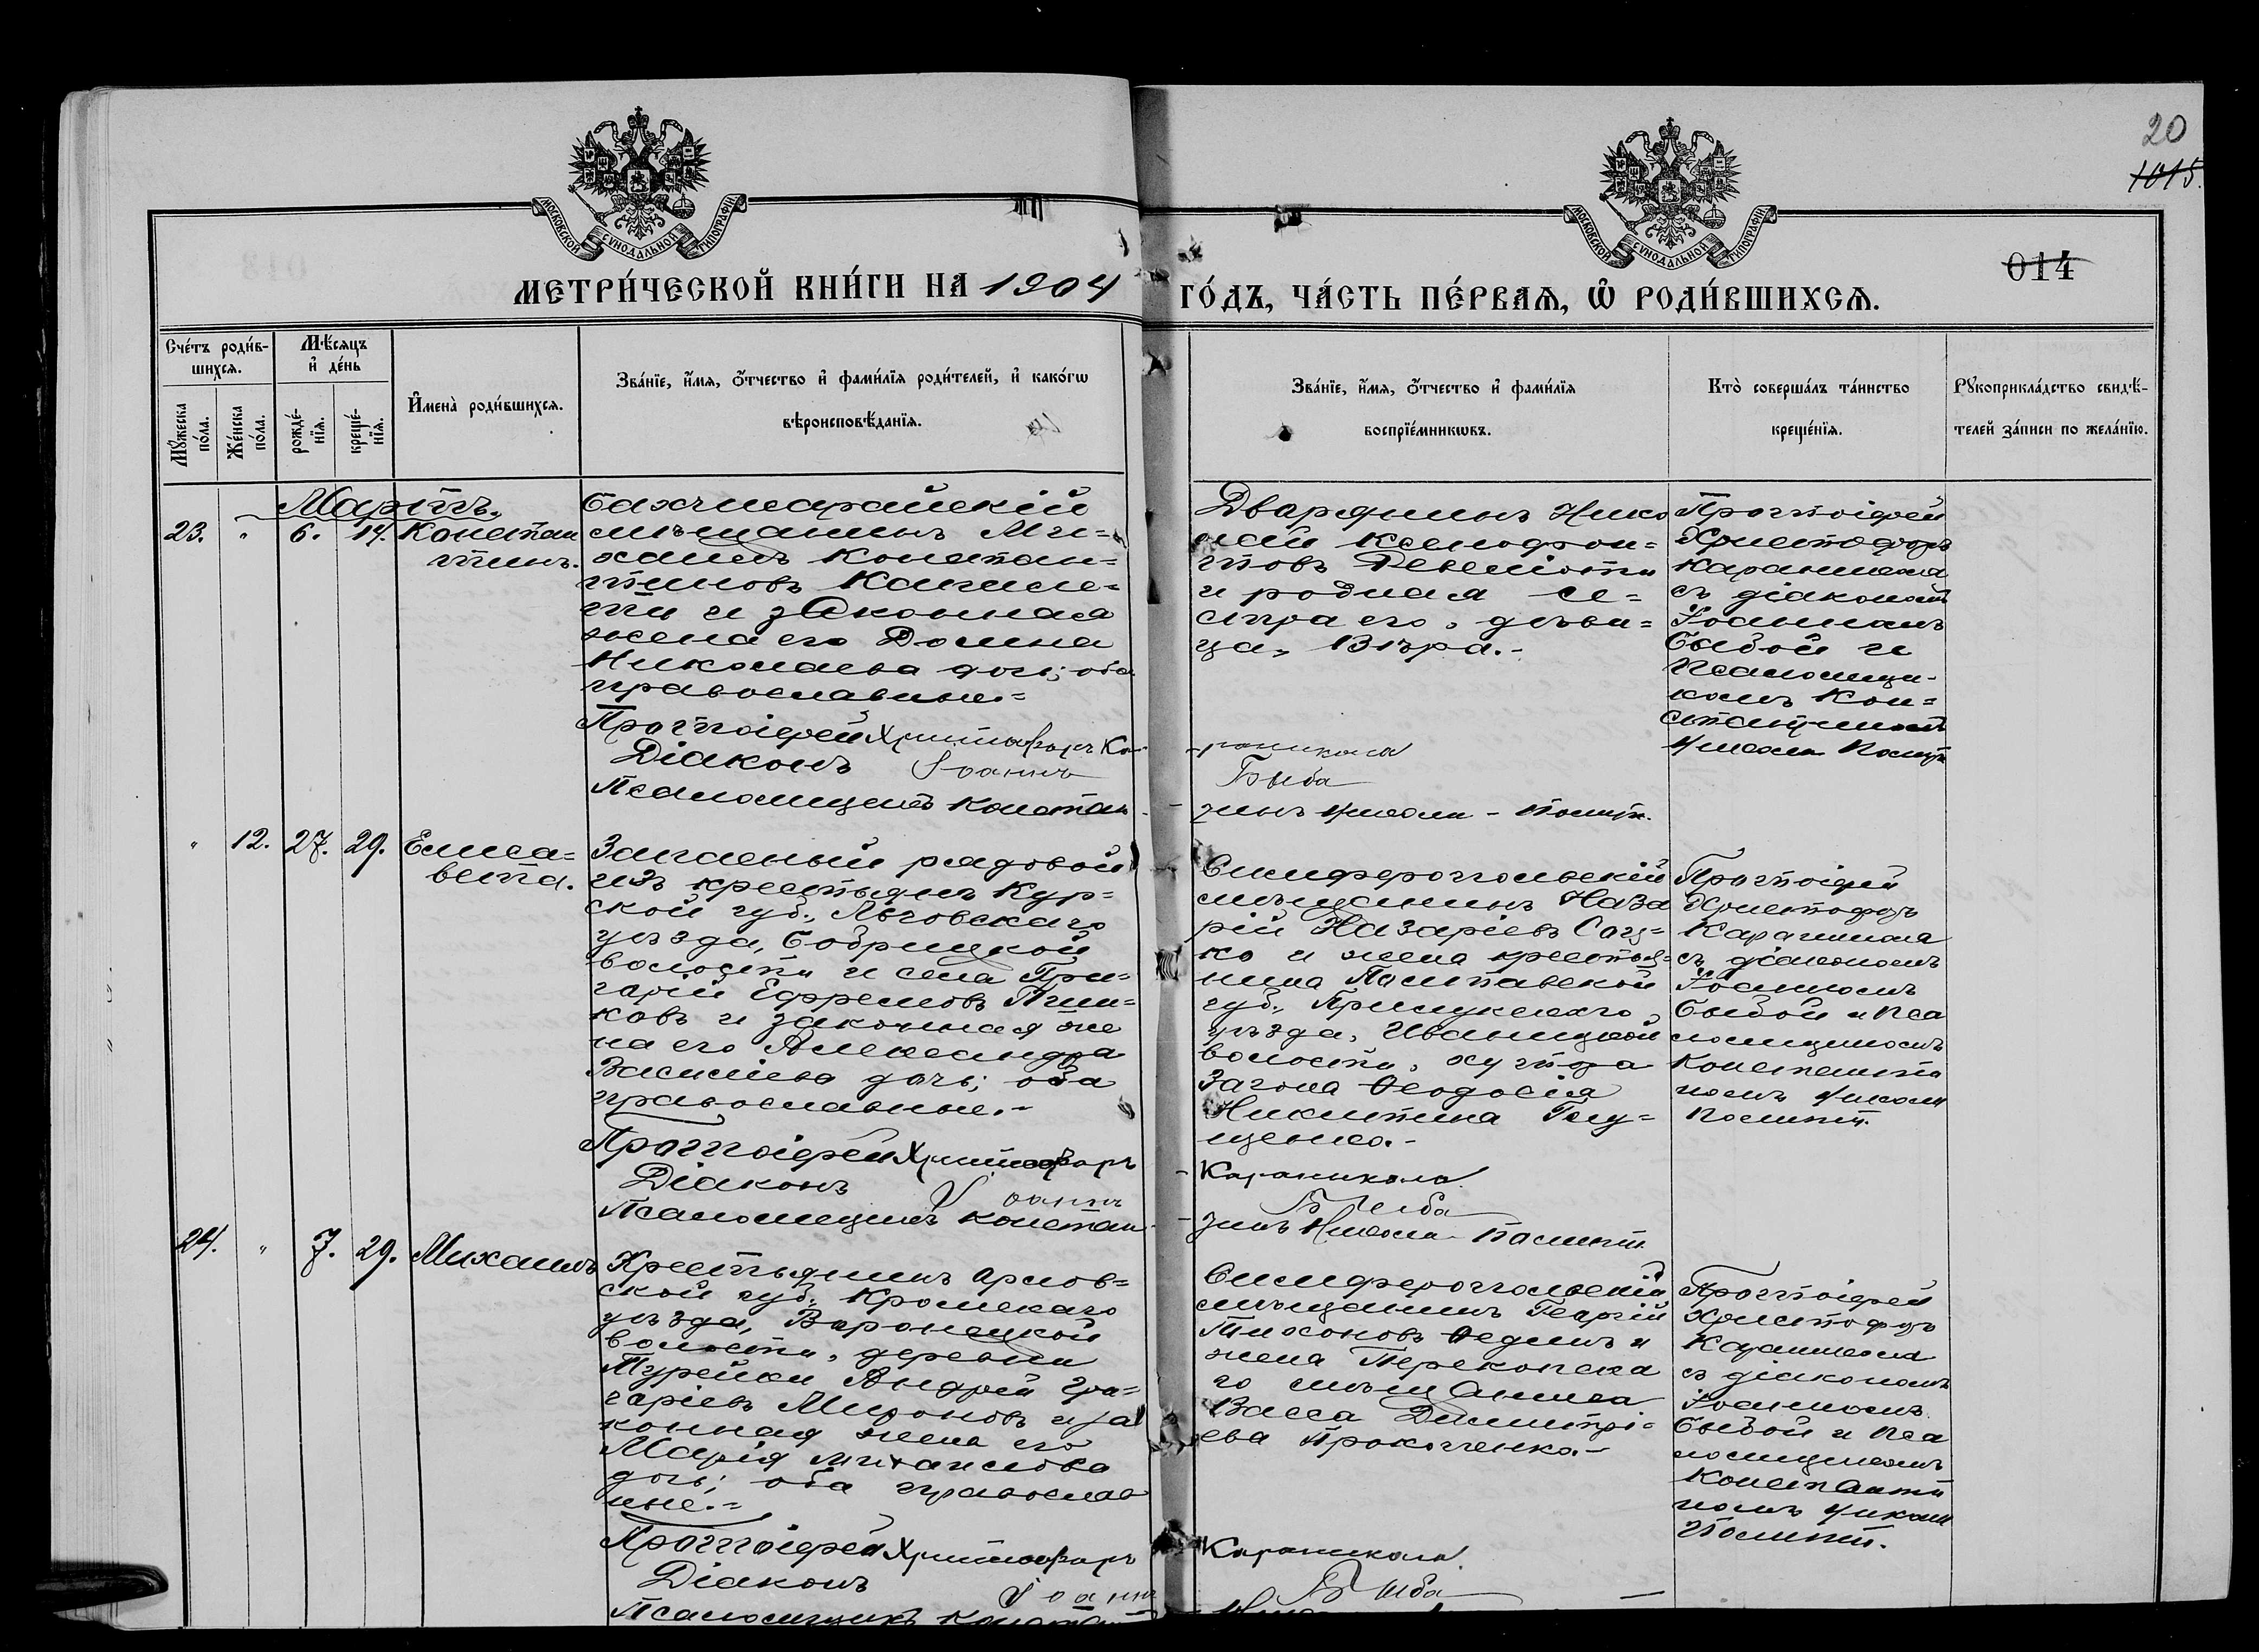 20
1015.
014
МОСКОВСКОЙ СѴНОДАЛЬНОЙ ТИПОГРАФІИ
МОСКОВСКОЙ СѴНОДАЛЬНОЙ ТИПОГРАФІИ
МЕТРИ́ЧЕСКОЙ КНИ́ГИ НА 1904 ГО́ДЪ, ЧА́СТЬ ПЕ́РВАѦ, Ѡ҆ РОДИ́ВШИХСѦ.
Сче́тъ роди́в-
шихсѧ.
Мꙋ́жеска
по́ла.
Же́нска
по́ла.
Мѣ́сѧцъ
и҆ де́нь
рожде́-
нїѧ.
креще́-
нїѧ.
И҆мена̀ роди́вшихсѧ.
Зва́нїе, и҆́мѧ, ѻ҆́тчество и҆ фами́лїѧ роди́телей, и҆ како́гѡ
вѣроисповѣ́данїѧ.
Зва́нїе, и҆́мѧ, ѻ҆́тчество и҆ фами́лїѧ
воспрїе́мникѡвъ.
Кто̀ соверша́лъ та́инство
креще́нїѧ.
Рꙋкоприкла́дство свидѣ́-
телей за́писи по жела́нїю.
Мартъ.
23. " 6. 14. Констан
тинъ.
Бахчисарайскій
мѣщанинъ Ми-
хаилъ Констан-
тиновъ
и законная
жена его Домна
Николаева дочь; оба
православные.=
Протоіерей Христофоръ Ка-
Діаконъ Іоаннъ
Псаломщикъ Констан-
Дворянинъ Нико
лай Ксенофон=
товъ
и родная се=
стра его, дѣви=
ца, Вѣра.-
раникола
Быба
тинъ Николи - Полит.
Протоіерей
Христофоръ
Караникола
съ діакономъ
Іоанномъ
Быбой и
Псаломщи-
комъ Кон=
стантиномъ
Николи Полит
" 12. 27. 29. Елиса=
вета.
Запасный рядовой
изъ крестьянъ Кур=
ской губ., Льговскаго
уѣзда, Бобрицкой
волости и села Гри=
горій Ефремовъ
и законная же
на его Александра
Васильева дочь; оба
православные.-
Протоіерей Христофоръ
Діаконъ Іоаннъ
Псаломщикъ Констан-
Симферопольскій
мѣщанинъ Наза
рій Назаріевъ
и жена крестья=
нина Полтавской
губ. Прилукскаго
уѣзда, Иваницкой
волости, хутора
Загона Ѳеодосія
Никитина Глу=
щенко.-
Караникола
Быба
тинъ Николи - Полит.
Протоіерей
Христофоръ
Караникола
съ діакономъ
Іоанномъ
Быбой и Пса
ломщикомъ
Константи
номъ Николи
Полит.
24. " 7. 29. Михаилъ
Крестьянинъ Орлов=
ской губ. Кромскаго
уѣзда, Воронецкой
волости, деревни
Мурейки Андрей Гри=
горіевъ Мироновъ и за
конная жена его
Марія Михайлова
дочь; оба православ
ные.=
Протоіерей Христофоръ
Діаконъ Іоаннъ
Псаломщикъ Констан
Симферопольскій
мѣщанинъ Георгій
Тихоновъ Ѳединъ и
жена Перекопска
го мѣщанина
Васса Димитрі=
ева Прокопенко.-
Караникола
Быба
Протоіерей
Христофоръ
Караникола
съ діакономъ
Іоанномъ
Быбой и Пса
ломщикомъ
Константи
номъ Николи
Полит.